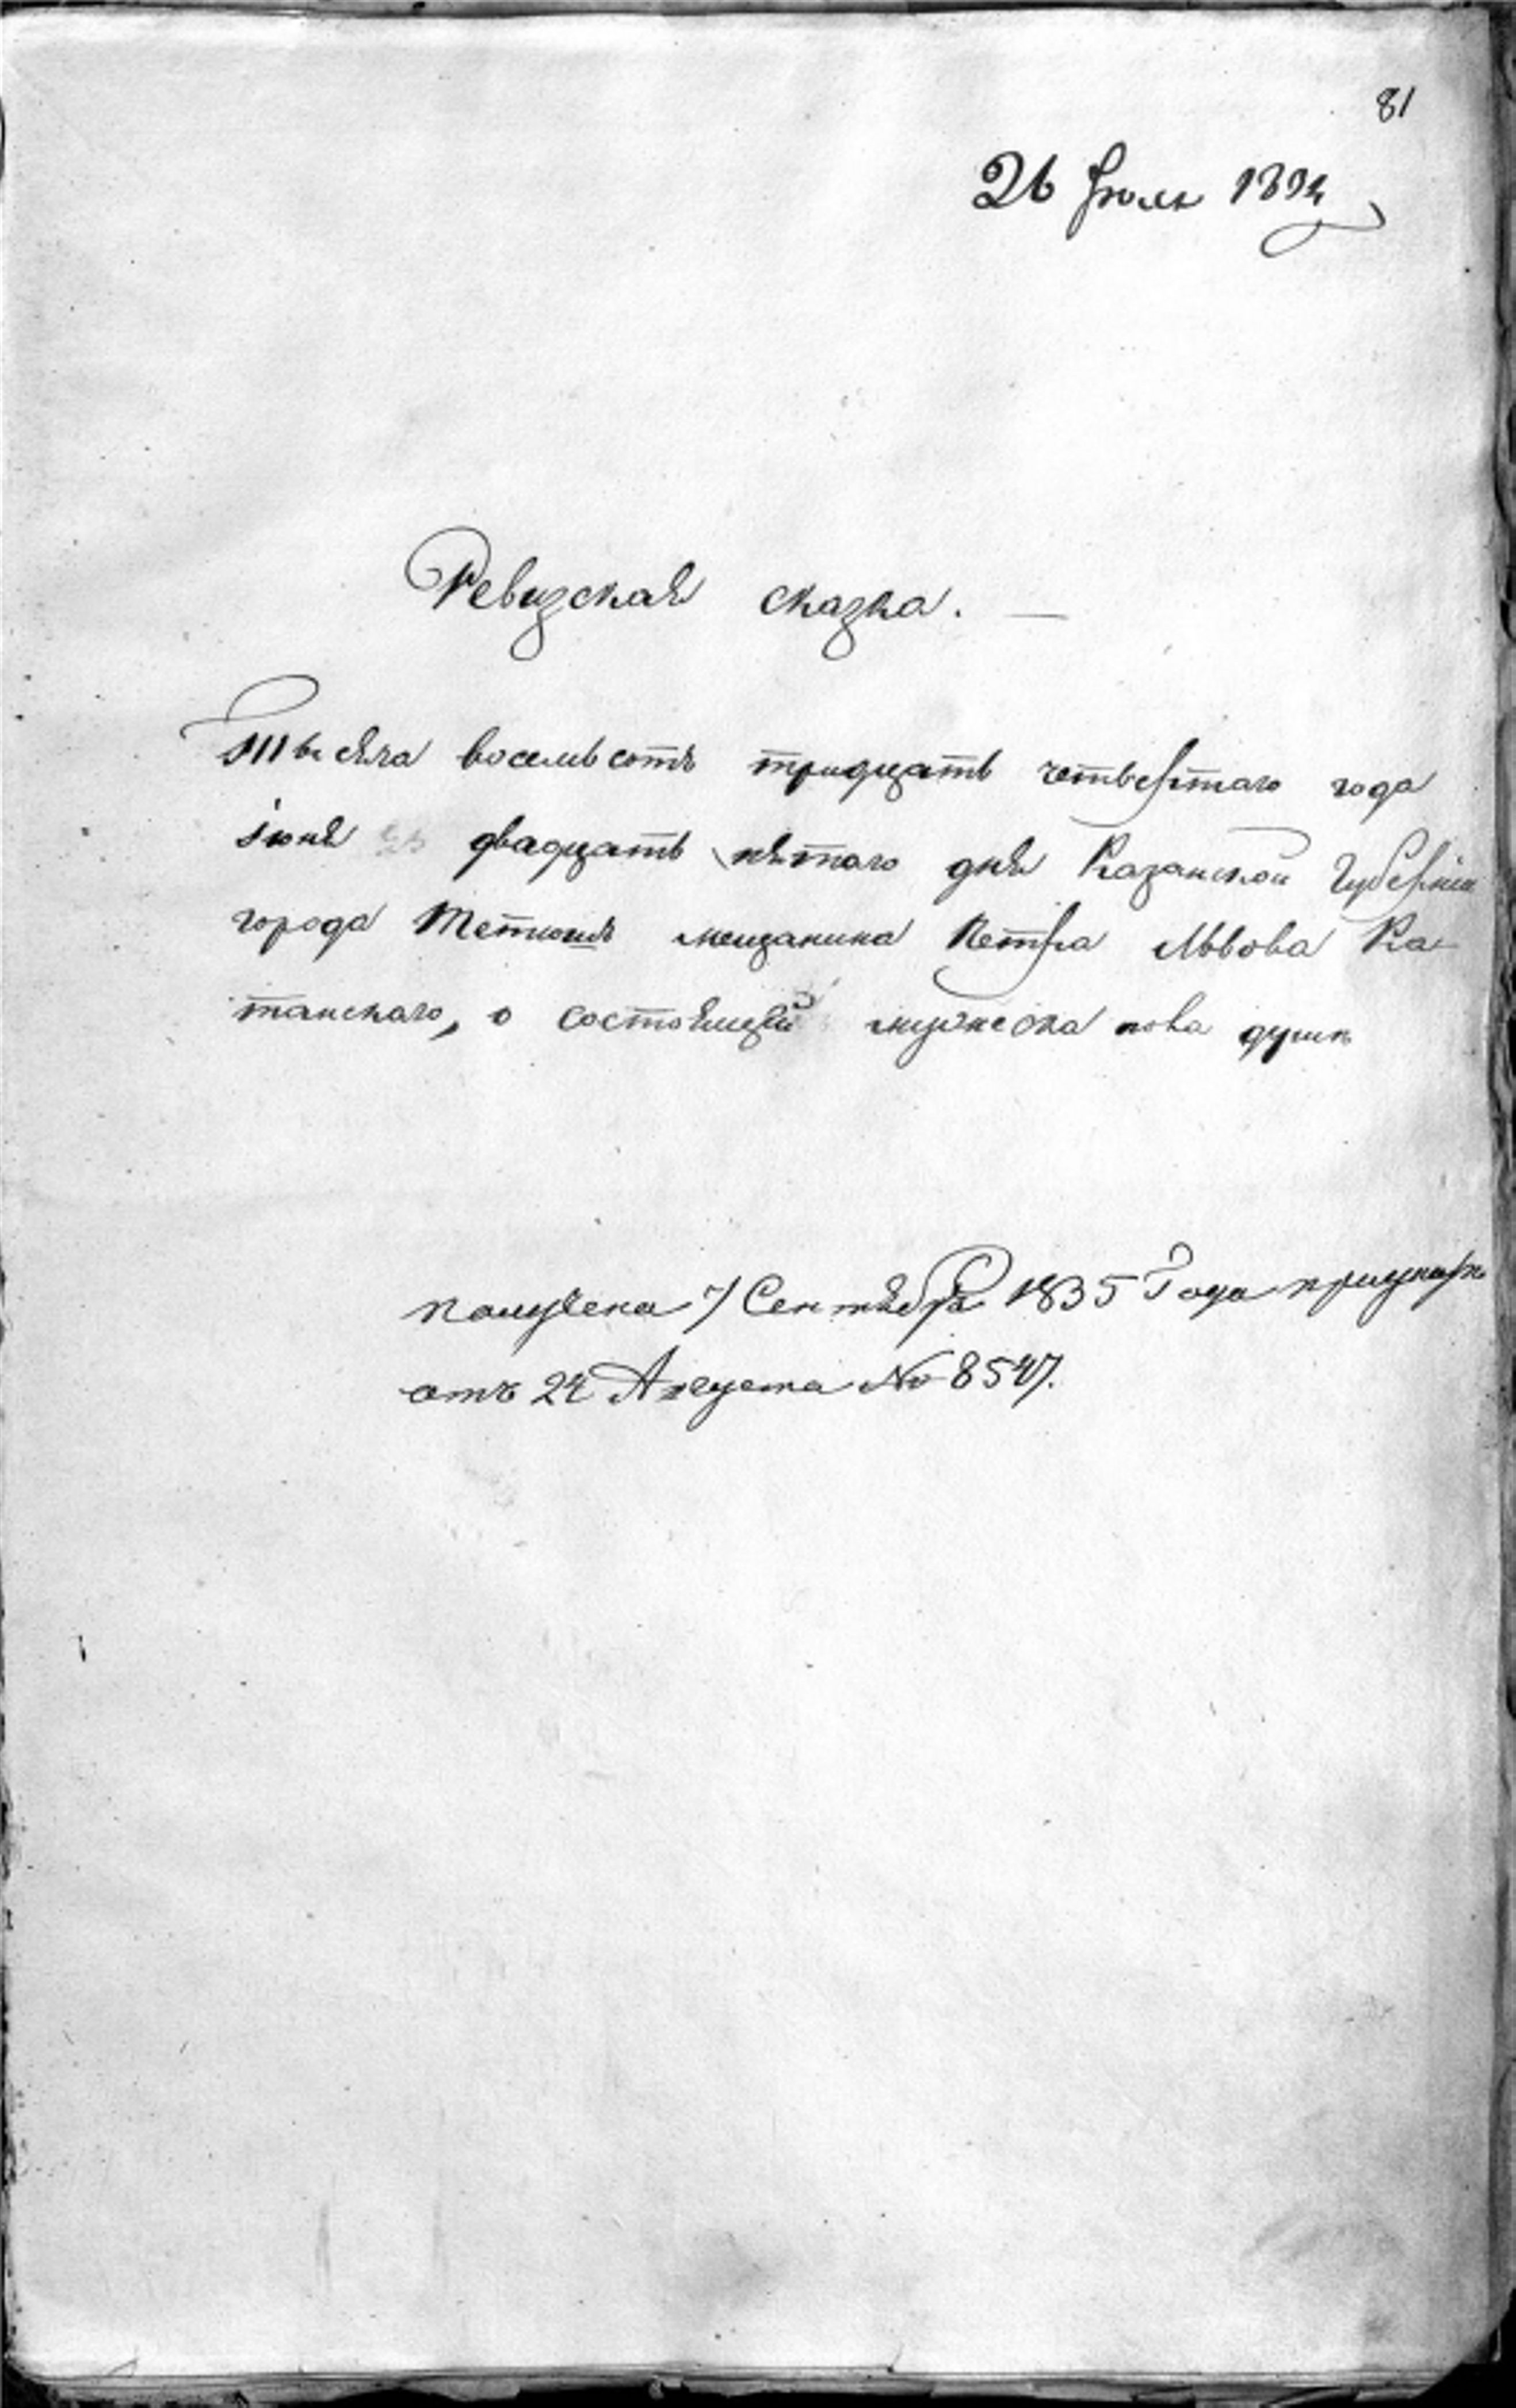 81
26 Июля 1834
Ревизская сказка. —
Тысяча восемьсотъ тридцать четвертаго года
іюня двадцать пятаго дня Казанской Губерніи
города Тетюшъ мещанина Петра Львова Ка-
танскаго, о состоящей мужеска пола души
получена 7 Сентября 1835 Года при указѣ
отъ 24 Августа № 8547.